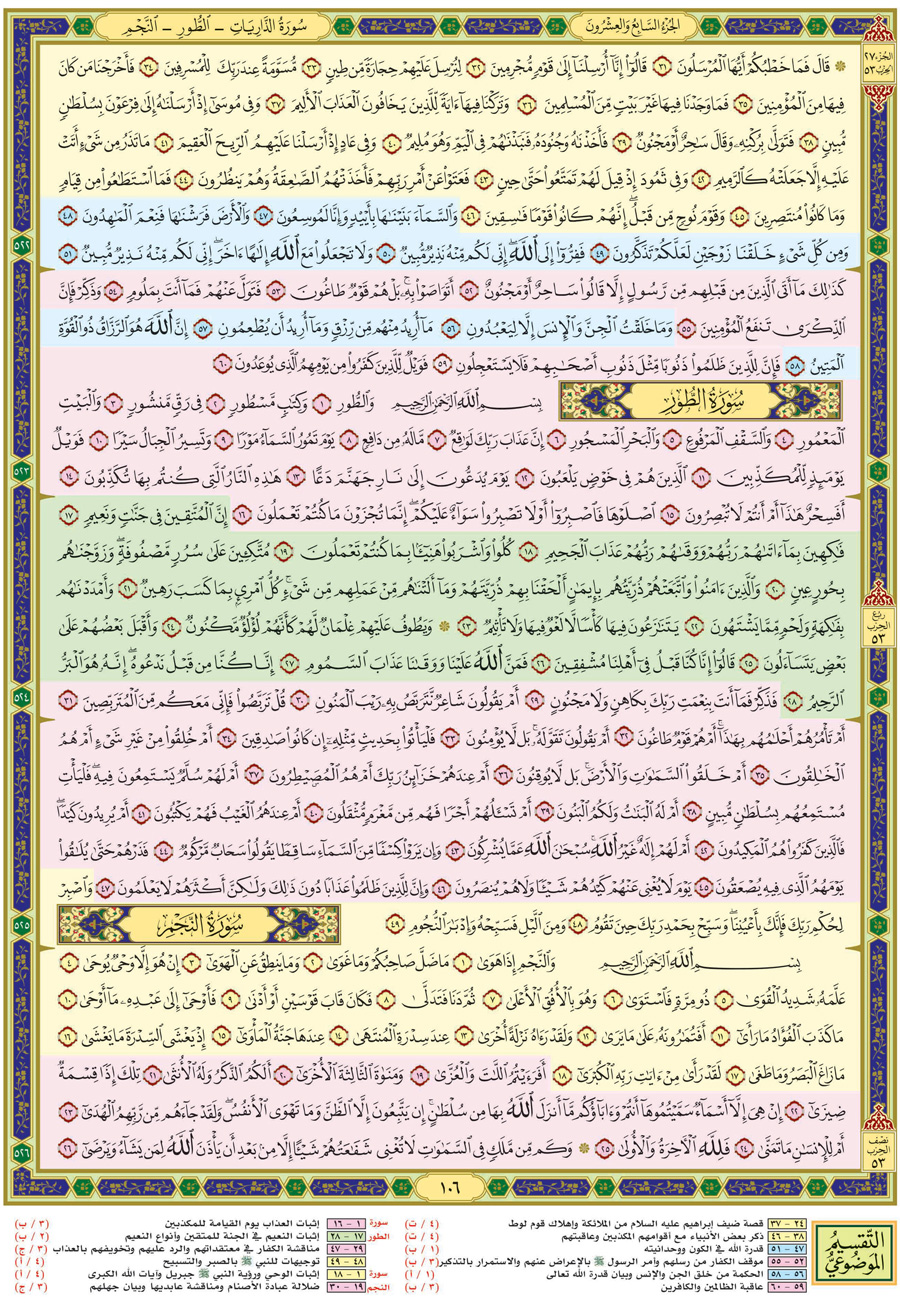 الجُزْءُ السَّابِعُ وَالعِشْرُونَ
سُورَةُ الذَّارِيَاتِ – الطُّورِ – النَّجْمِ
الجزء ٢٧
الحزب ٥٣
۞ قَالَ فَمَا خَطْبُكُمْ أَيُّهَا ٱلْمُرْسَلُونَ ٣١ قَالُوٓا۟ إِنَّآ أُرْسِلْنَآ إِلَىٰ قَوْمٍ مُّجْرِمِينَ ٣٢ لِنُرْسِلَ عَلَيْهِمْ حِجَارَةً مِّن طِينٍ ٣٣ مُّسَوَّمَةً عِندَ رَبِّكَ لِلْمُسْرِفِينَ ٣٤ فَأَخْرَجْنَا مَن كَانَ
فِيهَا مِنَ ٱلْمُؤْمِنِينَ ٣٥ فَمَا وَجَدْنَا فِيهَا غَيْرَ بَيْتٍ مِّنَ ٱلْمُسْلِمِينَ ٣٦ وَتَرَكْنَا فِيهَآ ءَايَةً لِّلَّذِينَ يَخَافُونَ ٱلْعَذَابَ ٱلْأَلِيمَ ٣٧ وَفِى مُوسَىٰٓ إِذْ أَرْسَلْنَٰهُ إِلَىٰ فِرْعَوْنَ بِسُلْطَٰنٍ
مُّبِينٍ ٣٨ فَتَوَلَّىٰ بِرُكْنِهِۦ وَقَالَ سَٰحِرٌ أَوْ مَجْنُونٌ ٣٩ فَأَخَذْنَٰهُ وَجُنُودَهُۥ فَنَبَذْنَٰهُمْ فِى ٱلْيَمِّ وَهُوَ مُلِيمٌ ٤٠ وَفِى عَادٍ إِذْ أَرْسَلْنَا عَلَيْهِمُ ٱلرِّيحَ ٱلْعَقِيمَ ٤١ مَا تَذَرُ مِن شَىْءٍ أَتَتْ
عَلَيْهِ إِلَّا جَعَلَتْهُ كَٱلرَّمِيمِ ٤٢ وَفِى ثَمُودَ إِذْ قِيلَ لَهُمْ تَمَتَّعُوا۟ حَتَّىٰ حِينٍ ٤٣ فَعَتَوْا۟ عَنْ أَمْرِ رَبِّهِمْ فَأَخَذَتْهُمُ ٱلصَّٰعِقَةُ وَهُمْ يَنظُرُونَ ٤٤ فَمَا ٱسْتَطَٰعُوا۟ مِن قِيَامٍ
وَمَا كَانُوا۟ مُنتَصِرِينَ ٤٥ وَقَوْمَ نُوحٍ مِّن قَبْلُ ۖ إِنَّهُمْ كَانُوا۟ قَوْمًا فَٰسِقِينَ ٤٦ وَٱلسَّمَآءَ بَنَيْنَٰهَا بِأَيْي۟دٍ وَإِنَّا لَمُوسِعُونَ ٤٧ وَٱلْأَرْضَ فَرَشْنَٰهَا فَنِعْمَ ٱلْمَٰهِدُونَ ٤٨
وَمِن كُلِّ شَىْءٍ خَلَقْنَا زَوْجَيْنِ لَعَلَّكُمْ تَذَكَّرُونَ ٤٩ فَفِرُّوٓا۟ إِلَى ٱللَّهِ ۖ إِنِّى لَكُم مِّنْهُ نَذِيرٌ مُّبِينٌ ٥٠ وَلَا تَجْعَلُوا۟ مَعَ ٱللَّهِ إِلَٰهًا ءَاخَرَ ۖ إِنِّى لَكُم مِّنْهُ نَذِيرٌ مُّبِينٌ ٥١
٥٢٢
كَذَٰلِكَ مَآ أَتَى ٱلَّذِينَ مِن قَبْلِهِم مِّن رَّسُولٍ إِلَّا قَالُوا۟ سَاحِرٌ أَوْ مَجْنُونٌ ٥٢ أَتَوَاصَوْا۟ بِهِۦ ۚ بَلْ هُمْ قَوْمٌ طَاغُونَ ٥٣ فَتَوَلَّ عَنْهُمْ فَمَآ أَنتَ بِمَلُومٍ ٥٤ وَذَكِّرْ فَإِنَّ
ٱلذِّكْرَىٰ تَنفَعُ ٱلْمُؤْمِنِينَ ٥٥ وَمَا خَلَقْتُ ٱلْجِنَّ وَٱلْإِنسَ إِلَّا لِيَعْبُدُونِ ٥٦ مَآ أُرِيدُ مِنْهُم مِّن رِّزْقٍ وَمَآ أُرِيدُ أَن يُطْعِمُونِ ٥٧ إِنَّ ٱللَّهَ هُوَ ٱلرَّزَّاقُ ذُو ٱلْقُوَّةِ
ٱلْمَتِينُ ٥٨ فَإِنَّ لِلَّذِينَ ظَلَمُوا۟ ذَنُوبًا مِّثْلَ ذَنُوبِ أَصْحَٰبِهِمْ فَلَا يَسْتَعْجِلُونِ ٥٩ فَوَيْلٌ لِّلَّذِينَ كَفَرُوا۟ مِن يَوْمِهِمُ ٱلَّذِى يُوعَدُونَ ٦٠
سُورَةُ الطُّورِ
بِسْمِ ٱللَّهِ ٱلرَّحْمَٰنِ ٱلرَّحِيمِ وَٱلطُّورِ ١ وَكِتَٰبٍ مَّسْطُورٍ ٢ فِى رَقٍّ مَّنشُورٍ ٣ وَٱلْبَيْتِ
ٱلْمَعْمُورِ ٤ وَٱلسَّقْفِ ٱلْمَرْفُوعِ ٥ وَٱلْبَحْرِ ٱلْمَسْجُورِ ٦ إِنَّ عَذَابَ رَبِّكَ لَوَٰقِعٌ ٧ مَّا لَهُۥ مِن دَافِعٍ ٨ يَوْمَ تَمُورُ ٱلسَّمَآءُ مَوْرًا ٩ وَتَسِيرُ ٱلْجِبَالُ سَيْرًا ١٠ فَوَيْلٌ
٥٢٣
يَوْمَئِذٍ لِّلْمُكَذِّبِينَ ١١ ٱلَّذِينَ هُمْ فِى خَوْضٍ يَلْعَبُونَ ١٢ يَوْمَ يُدَعُّونَ إِلَىٰ نَارِ جَهَنَّمَ دَعًّا ١٣ هَٰذِهِ ٱلنَّارُ ٱلَّتِى كُنتُم بِهَا تُكَذِّبُونَ ١٤
أَفَسِحْرٌ هَٰذَآ أَمْ أَنتُمْ لَا تُبْصِرُونَ ١٥ ٱصْلَوْهَا فَٱصْبِرُوٓا۟ أَوْ لَا تَصْبِرُوا۟ سَوَآءٌ عَلَيْكُمْ ۖ إِنَّمَا تُجْزَوْنَ مَا كُنتُمْ تَعْمَلُونَ ١٦ إِنَّ ٱلْمُتَّقِينَ فِى جَنَّٰتٍ وَنَعِيمٍ ١٧
فَٰكِهِينَ بِمَآ ءَاتَىٰهُمْ رَبُّهُمْ وَوَقَىٰهُمْ رَبُّهُمْ عَذَابَ ٱلْجَحِيمِ ١٨ كُلُوا۟ وَٱشْرَبُوا۟ هَنِيٓـًٔۢا بِمَا كُنتُمْ تَعْمَلُونَ ١٩ مُتَّكِـِٔينَ عَلَىٰ سُرُرٍ مَّصْفُوفَةٍ ۖ وَزَوَّجْنَٰهُم
بِحُورٍ عِينٍ ٢٠ وَٱلَّذِينَ ءَامَنُوا۟ وَٱتَّبَعَتْهُمْ ذُرِّيَّتُهُم بِإِيمَٰنٍ أَلْحَقْنَا بِهِمْ ذُرِّيَّتَهُمْ وَمَآ أَلَتْنَٰهُم مِّنْ عَمَلِهِم مِّن شَىْءٍ ۚ كُلُّ ٱمْرِئٍۭ بِمَا كَسَبَ رَهِينٌ ٢١ وَأَمْدَدْنَٰهُم
بِفَٰكِهَةٍ وَلَحْمٍ مِّمَّا يَشْتَهُونَ ٢٢ يَتَنَٰزَعُونَ فِيهَا كَأْسًا لَّا لَغْوٌ فِيهَا وَلَا تَأْثِيمٌ ٢٣ ۞ وَيَطُوفُ عَلَيْهِمْ غِلْمَانٌ لَّهُمْ كَأَنَّهُمْ لُؤْلُؤٌ مَّكْنُونٌ ٢٤ وَأَقْبَلَ بَعْضُهُمْ عَلَىٰ
ربع الحزب ٥٣
بَعْضٍ يَتَسَآءَلُونَ ٢٥ قَالُوٓا۟ إِنَّا كُنَّا قَبْلُ فِىٓ أَهْلِنَا مُشْفِقِينَ ٢٦ فَمَنَّ ٱللَّهُ عَلَيْنَا وَوَقَىٰنَا عَذَابَ ٱلسَّمُومِ ٢٧ إِنَّا كُنَّا مِن قَبْلُ نَدْعُوهُ ۖ إِنَّهُۥ هُوَ ٱلْبَرُّ
ٱلرَّحِيمُ ٢٨ فَذَكِّرْ فَمَآ أَنتَ بِنِعْمَتِ رَبِّكَ بِكَاهِنٍ وَلَا مَجْنُونٍ ٢٩ أَمْ يَقُولُونَ شَاعِرٌ نَّتَرَبَّصُ بِهِۦ رَيْبَ ٱلْمَنُونِ ٣٠ قُلْ تَرَبَّصُوا۟ فَإِنِّى مَعَكُم مِّنَ ٱلْمُتَرَبِّصِينَ ٣١
٥٢٤
أَمْ تَأْمُرُهُمْ أَحْلَٰمُهُم بِهَٰذَآ ۚ أَمْ هُمْ قَوْمٌ طَاغُونَ ٣٢ أَمْ يَقُولُونَ تَقَوَّلَهُۥ ۚ بَل لَّا يُؤْمِنُونَ ٣٣ فَلْيَأْتُوا۟ بِحَدِيثٍ مِّثْلِهِۦٓ إِن كَانُوا۟ صَٰدِقِينَ ٣٤ أَمْ خُلِقُوا۟ مِنْ غَيْرِ شَىْءٍ أَمْ هُمُ
ٱلْخَٰلِقُونَ ٣٥ أَمْ خَلَقُوا۟ ٱلسَّمَٰوَٰتِ وَٱلْأَرْضَ ۚ بَل لَّا يُوقِنُونَ ٣٦ أَمْ عِندَهُمْ خَزَآئِنُ رَبِّكَ أَمْ هُمُ ٱلْمُصَۣيْطِرُونَ ٣٧ أَمْ لَهُمْ سُلَّمٌ يَسْتَمِعُونَ فِيهِ ۖ فَلْيَأْتِ
مُسْتَمِعُهُم بِسُلْطَٰنٍ مُّبِينٍ ٣٨ أَمْ لَهُ ٱلْبَنَٰتُ وَلَكُمُ ٱلْبَنُونَ ٣٩ أَمْ تَسْـَٔلُهُمْ أَجْرًا فَهُم مِّن مَّغْرَمٍ مُّثْقَلُونَ ٤٠ أَمْ عِندَهُمُ ٱلْغَيْبُ فَهُمْ يَكْتُبُونَ ٤١ أَمْ يُرِيدُونَ كَيْدًا ۖ
فَٱلَّذِينَ كَفَرُوا۟ هُمُ ٱلْمَكِيدُونَ ٤٢ أَمْ لَهُمْ إِلَٰهٌ غَيْرُ ٱللَّهِ ۚ سُبْحَٰنَ ٱللَّهِ عَمَّا يُشْرِكُونَ ٤٣ وَإِن يَرَوْا۟ كِسْفًا مِّنَ ٱلسَّمَآءِ سَاقِطًا يَقُولُوا۟ سَحَابٌ مَّرْكُومٌ ٤٤ فَذَرْهُمْ حَتَّىٰ يُلَٰقُوا۟
يَوْمَهُمُ ٱلَّذِى فِيهِ يُصْعَقُونَ ٤٥ يَوْمَ لَا يُغْنِى عَنْهُمْ كَيْدُهُمْ شَيْـًٔا وَلَا هُمْ يُنصَرُونَ ٤٦ وَإِنَّ لِلَّذِينَ ظَلَمُوا۟ عَذَابًا دُونَ ذَٰلِكَ وَلَٰكِنَّ أَكْثَرَهُمْ لَا يَعْلَمُونَ ٤٧ وَٱصْبِرْ
لِحُكْمِ رَبِّكَ فَإِنَّكَ بِأَعْيُنِنَا ۖ وَسَبِّحْ بِحَمْدِ رَبِّكَ حِينَ تَقُومُ ٤٨ وَمِنَ ٱلَّيْلِ فَسَبِّحْهُ وَإِدْبَٰرَ ٱلنُّجُومِ ٤٩
سُورَةُ النَّجْمِ
٥٢٥
بِسْمِ ٱللَّهِ ٱلرَّحْمَٰنِ ٱلرَّحِيمِ وَٱلنَّجْمِ إِذَا هَوَىٰ ١ مَا ضَلَّ صَاحِبُكُمْ وَمَا غَوَىٰ ٢ وَمَا يَنطِقُ عَنِ ٱلْهَوَىٰٓ ٣ إِنْ هُوَ إِلَّا وَحْىٌ يُوحَىٰ ٤
عَلَّمَهُۥ شَدِيدُ ٱلْقُوَىٰ ٥ ذُو مِرَّةٍ فَٱسْتَوَىٰ ٦ وَهُوَ بِٱلْأُفُقِ ٱلْأَعْلَىٰ ٧ ثُمَّ دَنَا فَتَدَلَّىٰ ٨ فَكَانَ قَابَ قَوْسَيْنِ أَوْ أَدْنَىٰ ٩ فَأَوْحَىٰٓ إِلَىٰ عَبْدِهِۦ مَآ أَوْحَىٰ ١٠
مَا كَذَبَ ٱلْفُؤَادُ مَا رَأَىٰٓ ١١ أَفَتُمَٰرُونَهُۥ عَلَىٰ مَا يَرَىٰ ١٢ وَلَقَدْ رَءَاهُ نَزْلَةً أُخْرَىٰ ١٣ عِندَ سِدْرَةِ ٱلْمُنتَهَىٰ ١٤ عِندَهَا جَنَّةُ ٱلْمَأْوَىٰٓ ١٥ إِذْ يَغْشَى ٱلسِّدْرَةَ مَا يَغْشَىٰ ١٦
مَا زَاغَ ٱلْبَصَرُ وَمَا طَغَىٰ ١٧ لَقَدْ رَأَىٰ مِنْ ءَايَٰتِ رَبِّهِ ٱلْكُبْرَىٰٓ ١٨ أَفَرَءَيْتُمُ ٱللَّٰتَ وَٱلْعُزَّىٰ ١٩ وَمَنَوٰةَ ٱلثَّالِثَةَ ٱلْأُخْرَىٰٓ ٢٠ أَلَكُمُ ٱلذَّكَرُ وَلَهُ ٱلْأُنثَىٰ ٢١ تِلْكَ إِذًا قِسْمَةٌ
ضِيزَىٰٓ ٢٢ إِنْ هِىَ إِلَّآ أَسْمَآءٌ سَمَّيْتُمُوهَآ أَنتُمْ وَءَابَآؤُكُم مَّآ أَنزَلَ ٱللَّهُ بِهَا مِن سُلْطَٰنٍ ۚ إِن يَتَّبِعُونَ إِلَّا ٱلظَّنَّ وَمَا تَهْوَى ٱلْأَنفُسُ ۖ وَلَقَدْ جَآءَهُم مِّن رَّبِّهِمُ ٱلْهُدَىٰٓ ٢٣
أَمْ لِلْإِنسَٰنِ مَا تَمَنَّىٰ ٢٤ فَلِلَّهِ ٱلْـَٔاخِرَةُ وَٱلْأُولَىٰ ٢٥ ۞ وَكَم مِّن مَّلَكٍ فِى ٱلسَّمَٰوَٰتِ لَا تُغْنِى شَفَٰعَتُهُمْ شَيْـًٔا إِلَّا مِنۢ بَعْدِ أَن يَأْذَنَ ٱللَّهُ لِمَن يَشَآءُ وَيَرْضَىٰٓ ٢٦
نصف الحزب ٥٣
٥٢٦
١٠٦
التَّقْسِيمُ المَوْضُوعِيُّ
٢٤ – ٣٧ قصة ضيف إبراهيم عليه السلام من الملائكة وإهلاك قوم لوط (٤ / ت)
٣٨ – ٤٦ ذكر بعض الأنبياء مع أقوامهم المكذبين وعاقبتهم (٤ / ت)
٤٧ – ٥١ قدرة الله في الكون ووحدانيته (١ / ب)
٥٢ – ٥٥ موقف الكفار من رسلهم وأمر الرسول ﷺ بالإعراض عنهم والاستمرار بالتذكير (٣ / ب)
٥٦ – ٥٨ الحكمة من خلق الجن والإنس وبيان قدرة الله تعالى (١ / أ)
٥٩ – ٦٠ عاقبة الظالمين والكافرين (٣ / ب)
سورة الطور
١ – ١٦ إثبات العذاب يوم القيامة للمكذبين (٣ / ب)
١٧ – ٢٨ إثبات النعيم في الجنة للمتقين وأنواع النعيم (٢ / ب)
٢٩ – ٤٧ مناقشة الكفار في معتقداتهم والرد عليهم وتخويفهم بالعذاب (٣ / ج)
٤٨ – ٤٩ توجيهات للنبي ﷺ بالصبر والتسبيح (٤ / أ)
سورة النجم
١ – ١٨ إثبات الوحي ورؤية النبي ﷺ جبريل وآيات الله الكبرى (٤ / أ)
١٩ – ٣٠ ضلالة عبادة الأصنام ومناقشة عابديها وبيان جهلهم (٣ / ج)